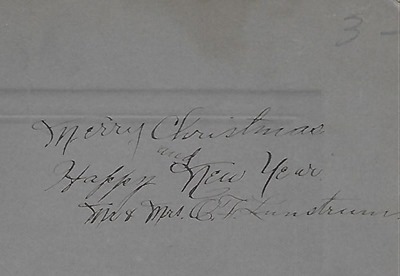 3-
Merry Christmas
and
Happy New Year
Mr & Mrs. C. F. Lunstrum